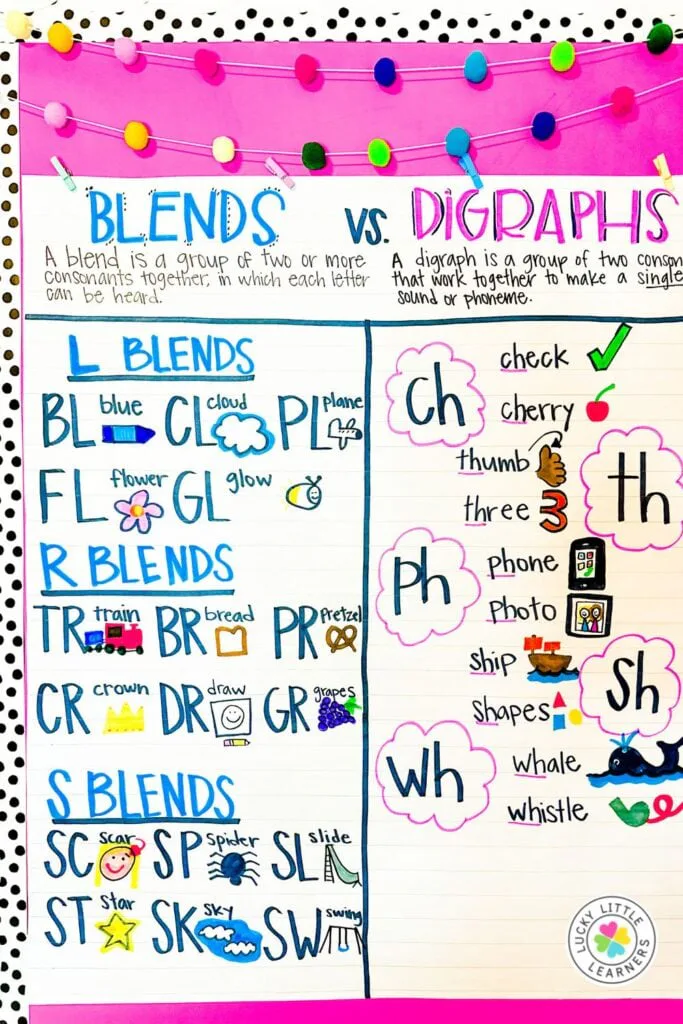 BLENDS VS. DIGRAPHS
A blend is a group of two or more
consonants together, in which each letter
can be heard.
A digraph is a group of two conson
that work together to make a single
sound or phoneme.
L BLENDS
BL blue CL cloud PL plane
FL flower GL glow
R BLENDS
TR train BR bread PR Pretzel
CR crown DR draw GR grapes
S BLENDS
SC scar SP Spider SL slide
ST Star SK sky SW swing
ch
check
cherry
th
thumb
three
3
ph
phone
photo
sh
ship
shapes
wh
whale
whistle
LUCKY LITTLE LEARNERS